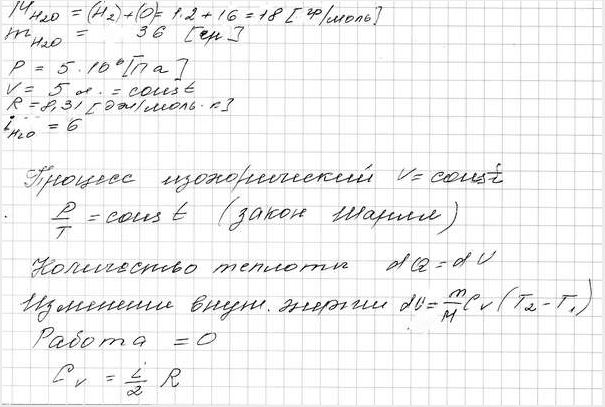 μ H2O = (H2)+(O) = 1·2+16 = 18 [гр/моль]
m H2O = 36 [гр]
P = 5·10⁶ [Па]
V = 5 л. = const
R = 8,31 [Дж/моль·к]
i H2O = 6
Процесс изохорический V = const
P/T = const (закон Шарля)
Количество теплоты dQ = dU
Изменение внут. энергии dU = m/M Cv (T2 – T1)
Работа = 0
Cv = i/2 R